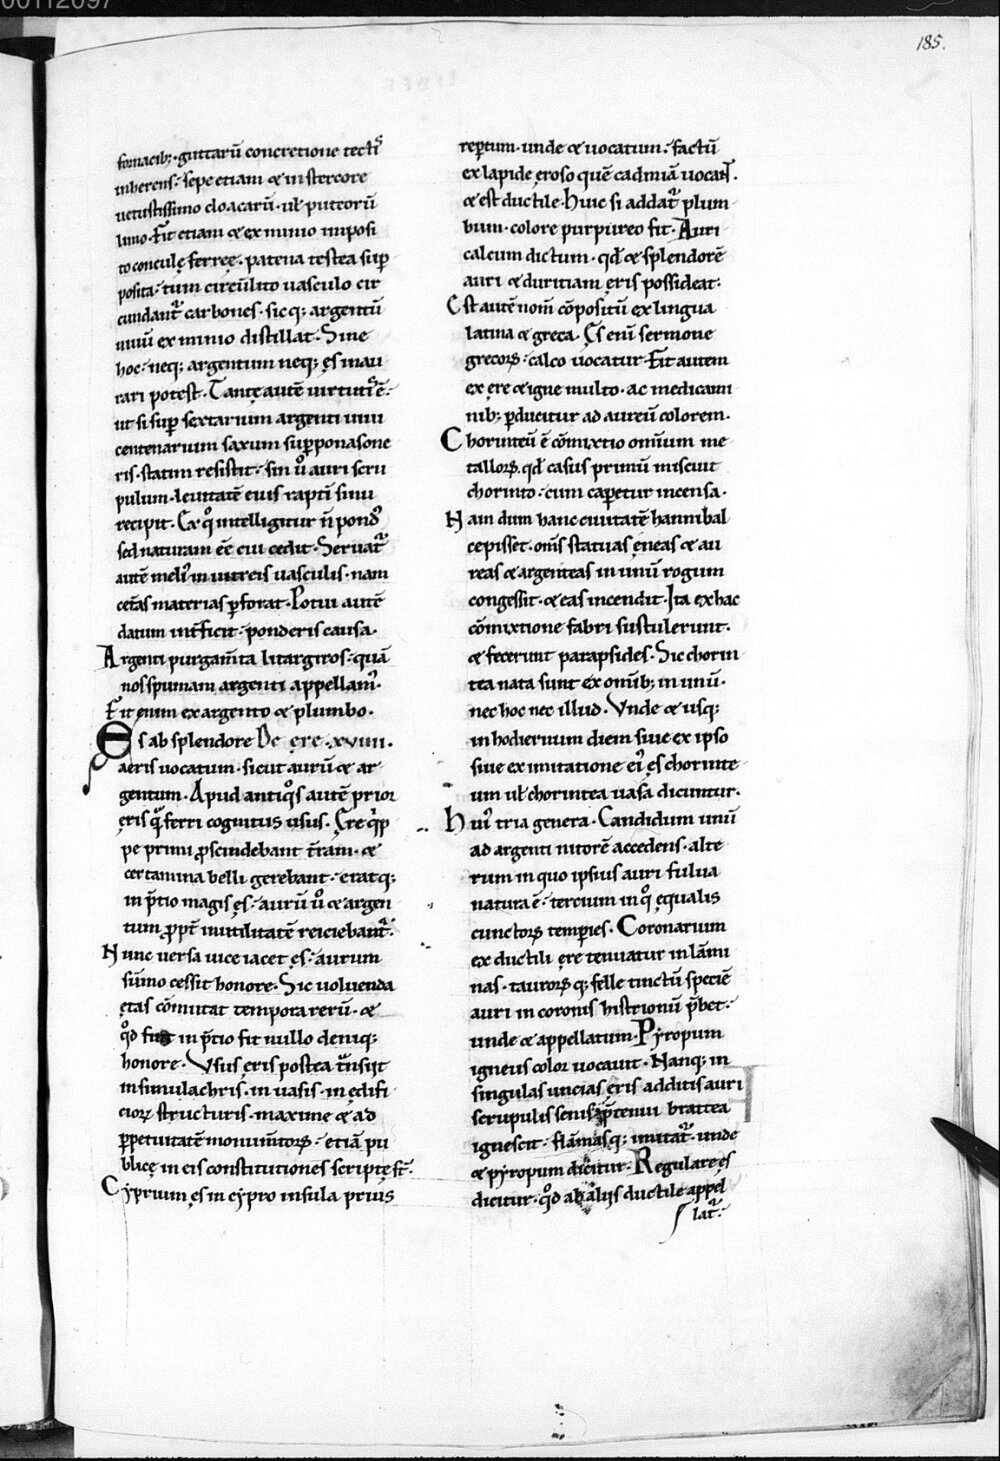 00112097
185.
fornacib; · guttarū concretione tectiſ
inherens · sepe etiam & in stercore
uetustissimo cloacarū · uł puteorū
limo · Fit etiam & ex minio imposi
to concule ferreę · patena testea sup
posita · tum circūlito uasculo cir
cundant᷑ carbones · sicq; argentū
uiuū ex minio distillat · Sine
hoc neq; argentum neq; ęs inau
rari potest · Tantę autē uirtutis ē ·
ut si sup sextarium argenti uiui
centenarium saxum supponas one
ris · statim resistit · sin ů auri scru
pulum · leuitatē eius raptī sinu
recipit · Ex qͦ intelligitur n̄ pondꝰ
sed naturam eē cui cedit · Seruat᷑
autē meliꝰ in uitreis uasculis · nam
cetas materias pforat · Potui autē
datum intficit ponderis causa ·
Argenti purgam̄ta litargiros · quā
nos spumam argenti appellamꝰ ·
Fit enim ex argento & plumbo ·
Es ab splendore De ęre · xviiii ·
aeris uocatum · sicut aurū & ar
gentum · Apud antiqͦs autē prior
ęris qͣ ferri cognitus usus · Ęre qͥpp
pe primi pscindebant t̄ram · &
certamina belli gerebant · eratq;
in p̄tio magis ęs · aurū ů & argen
tum ppt̄ inutilitatē reiciebant᷑ ·
Nunc uersa uice iacet ęs · aurum
sūmo cessit honore · Sic uoluenda
ętas cōmutat tempora rerū · &
qͦd fuit in p̄tio fit nullo deniq;
honore · Vsus ęris postea tͣnsiit
in simulachris · in uasis · in ędifi
cioꝝ structuris · maxime & ad
ppetuitatē monum̄torꝝ · etiā pu
blicę in eis constitutiones scriptę st̄ ·
Cyprium ęs in cypro insula prius
reptum · unde & uocatum · factū
ex lapide ęroso quē cadmiā uocant ·
& est ductile · Huic si addat᷑ plum
bum · colore purpureo fit · Auri
calcum dictum · qđ & splendorē
auri & duritiam ęris possideat ·
Est autē nom̄ cōpositū ex lingua
latina & greca · Ęs enī sermone
grecorꝝ calco uocatur · Fit autem
ex ęre & igne multo · ac medicami
nib; pducitur ad aureū colorem ·
Chorinteū ē cōmixtio omium me
tallorꝝ · qđ casus primū miscuit
chorinto · cum caperetur incensa ·
Nam dum hanc ciuitatē hannibal
cepisset · om̄s statuas ęneas & au
reas & argenteas in unū rogum
congessit · & eas incendit · Ita ex hac
cōmixtione fabri sustulerunt ·
& fecerunt parapsides · Sic chorin
tea nata sunt ex omib; in unū ·
nec hoc nec illud · Vnde & usq;
in hodiernum diem siue ex ipso
siue ex imitatione eiꝰ ęs chorinte
um uł chorintea uasa dicuntur ·
Huiꝰ tria genera · Candidum unū
ad argenti nitorē accedens · alte
rum in quo ipsius auri fulua
natura ē · tercium in qͦ ęqualis
cunctorꝝ temperies · Coronarium
ex ductili ęre tenuatur in lāmi
nas · taurorꝝ q; felle tinctū speciē
auri in coronis histrionū p̄bet ·
unde & appellatum · Pyropum
igneus color uocauit · Nanq; in
singulas uncias ęris additis auri
scrupulis senis p̄tenui brattea
ignescit · flāmasq; imitat᷑ · unde
& pyropum dicitur · Regulare ęs
dicitur · qͦd ab aliis ductile appel
lat᷑ ·